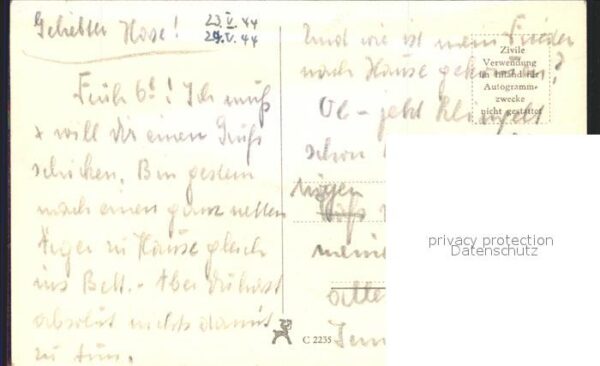 Geliebter Hase! 23.V.44
24.V.44
Früh 6h! Ich muß
x will Dir einen Gruß
schicken. Bin gestern
nach einem ganz netten
Ärger zu Hause gleich
ins Bett. - Aber Du hast
absolut nichts damit
zu tun.
Und wie ist mein Frieder
nach Hause gekommen?
Oh - jetzt klingelt
schon
meine
alle
C 2235
Zivile
Verwendung
im
Autogramm-
zwecke
nicht gestattet
privacy protection
Datenschutz